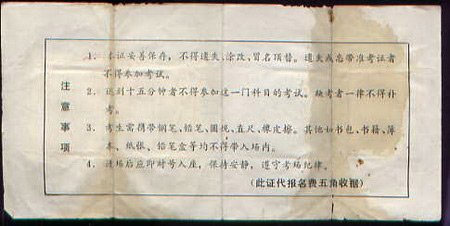 注意事项
1. 本证妥善保存，不得遗失、涂改、冒名顶替。遗失或忘带准考证者
不得参加考试。
2. 迟到十五分钟者不得参加这一门科目的考试。缺考者一律不得补
考。
3. 考生需携带钢笔、铅笔、圆规、直尺、橡皮擦。其他如书包、书籍、簿
本、纸张、铅笔盒等均不得带入场内。
4. 进场后应即对号入座，保持安静，遵守考场纪律。
(此证代报名费五角收据)